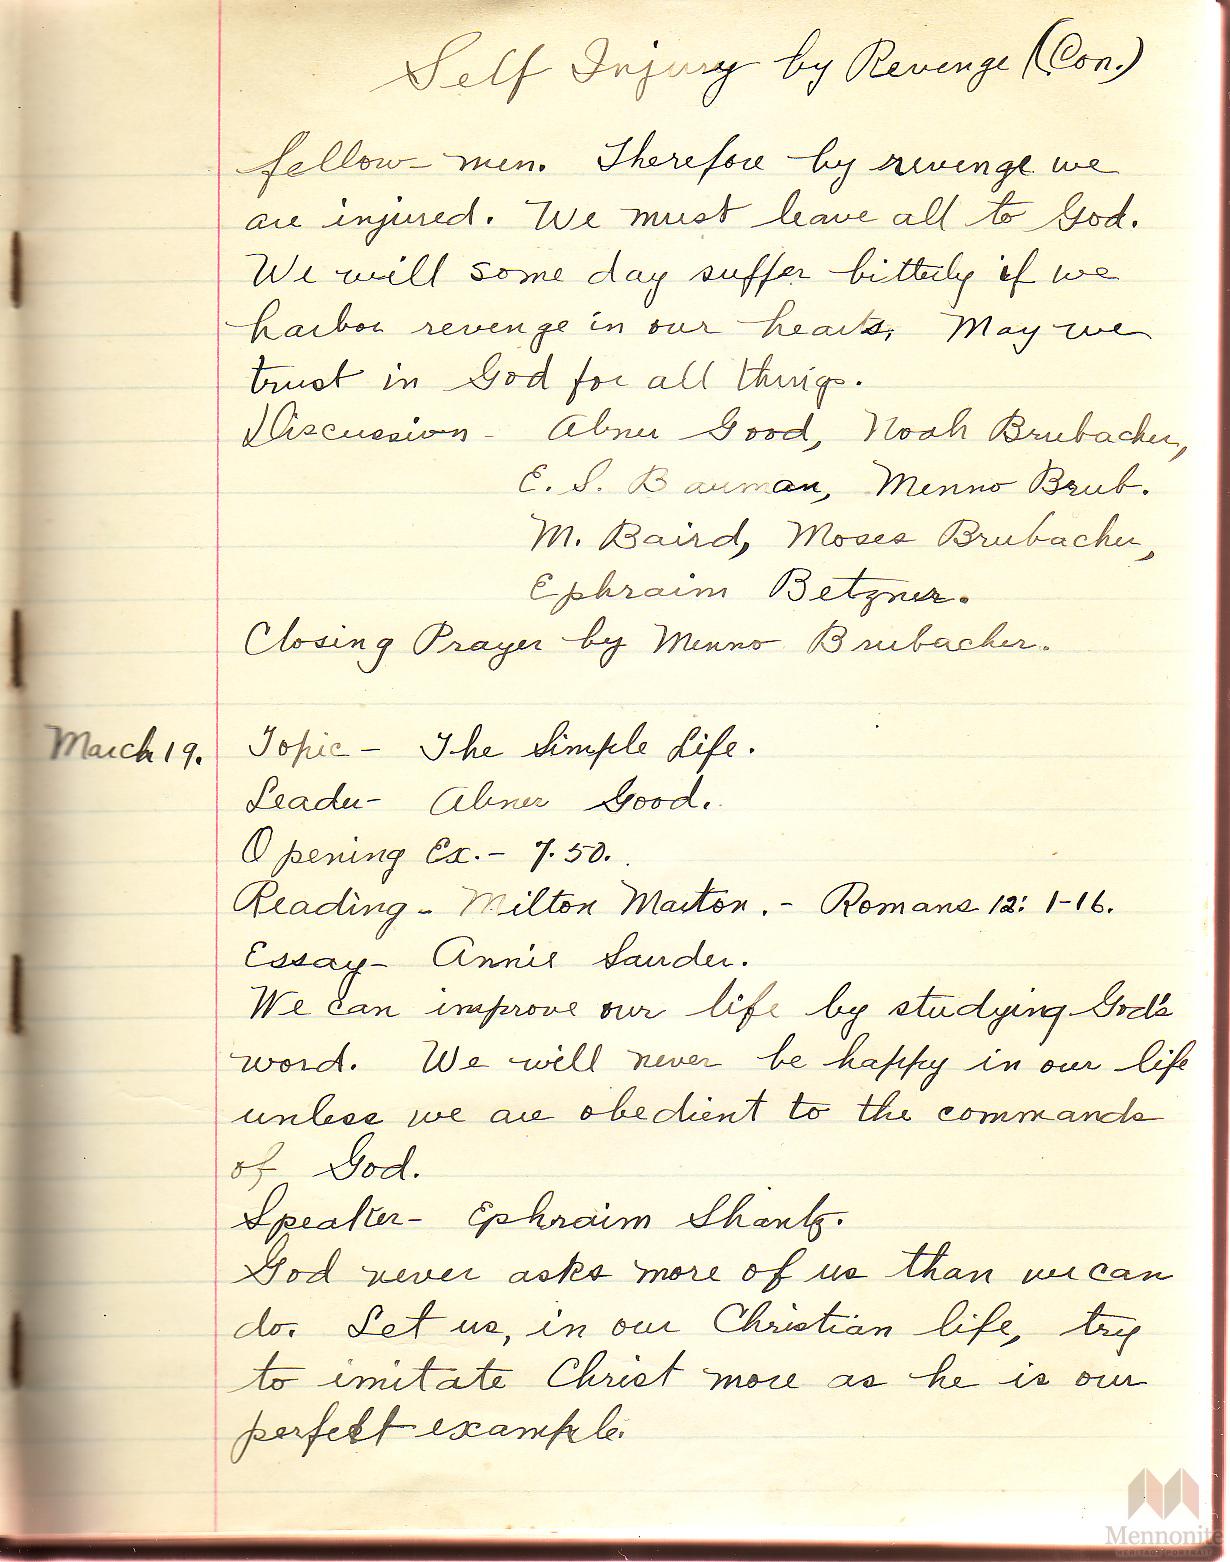 Self Injury by Revenge (Con.)
fellow-men. Therefore by revenge we
are injured. We must leave all to God.
We will some day suffer bitterly if we
harbor revenge in our hearts. May we
trust in God for all things.
Discussion - Abner Good, Noah Brubacher,
E. S. Bauman, Menno Brub.
M. Baird, Moses Brubacher,
Ephraim Betzner.
Closing Prayer by Menno Brubacher.
March 19. Topic - The Simple Life.
Leader - Abner Good.
Opening Ex. - 7.50.
Reading - Milton Martin. - Romans 12: 1-16.
Essay - Annie Sauder.
We can improve our life by studying God's
word. We will never be happy in our life
unless we are obedient to the commands
of God.
Speaker - Ephraim Shantz.
God never asks more of us than we can
do. Let us, in our Christian life, try
to imitate Christ more as he is our
perfect example.
Mennonite